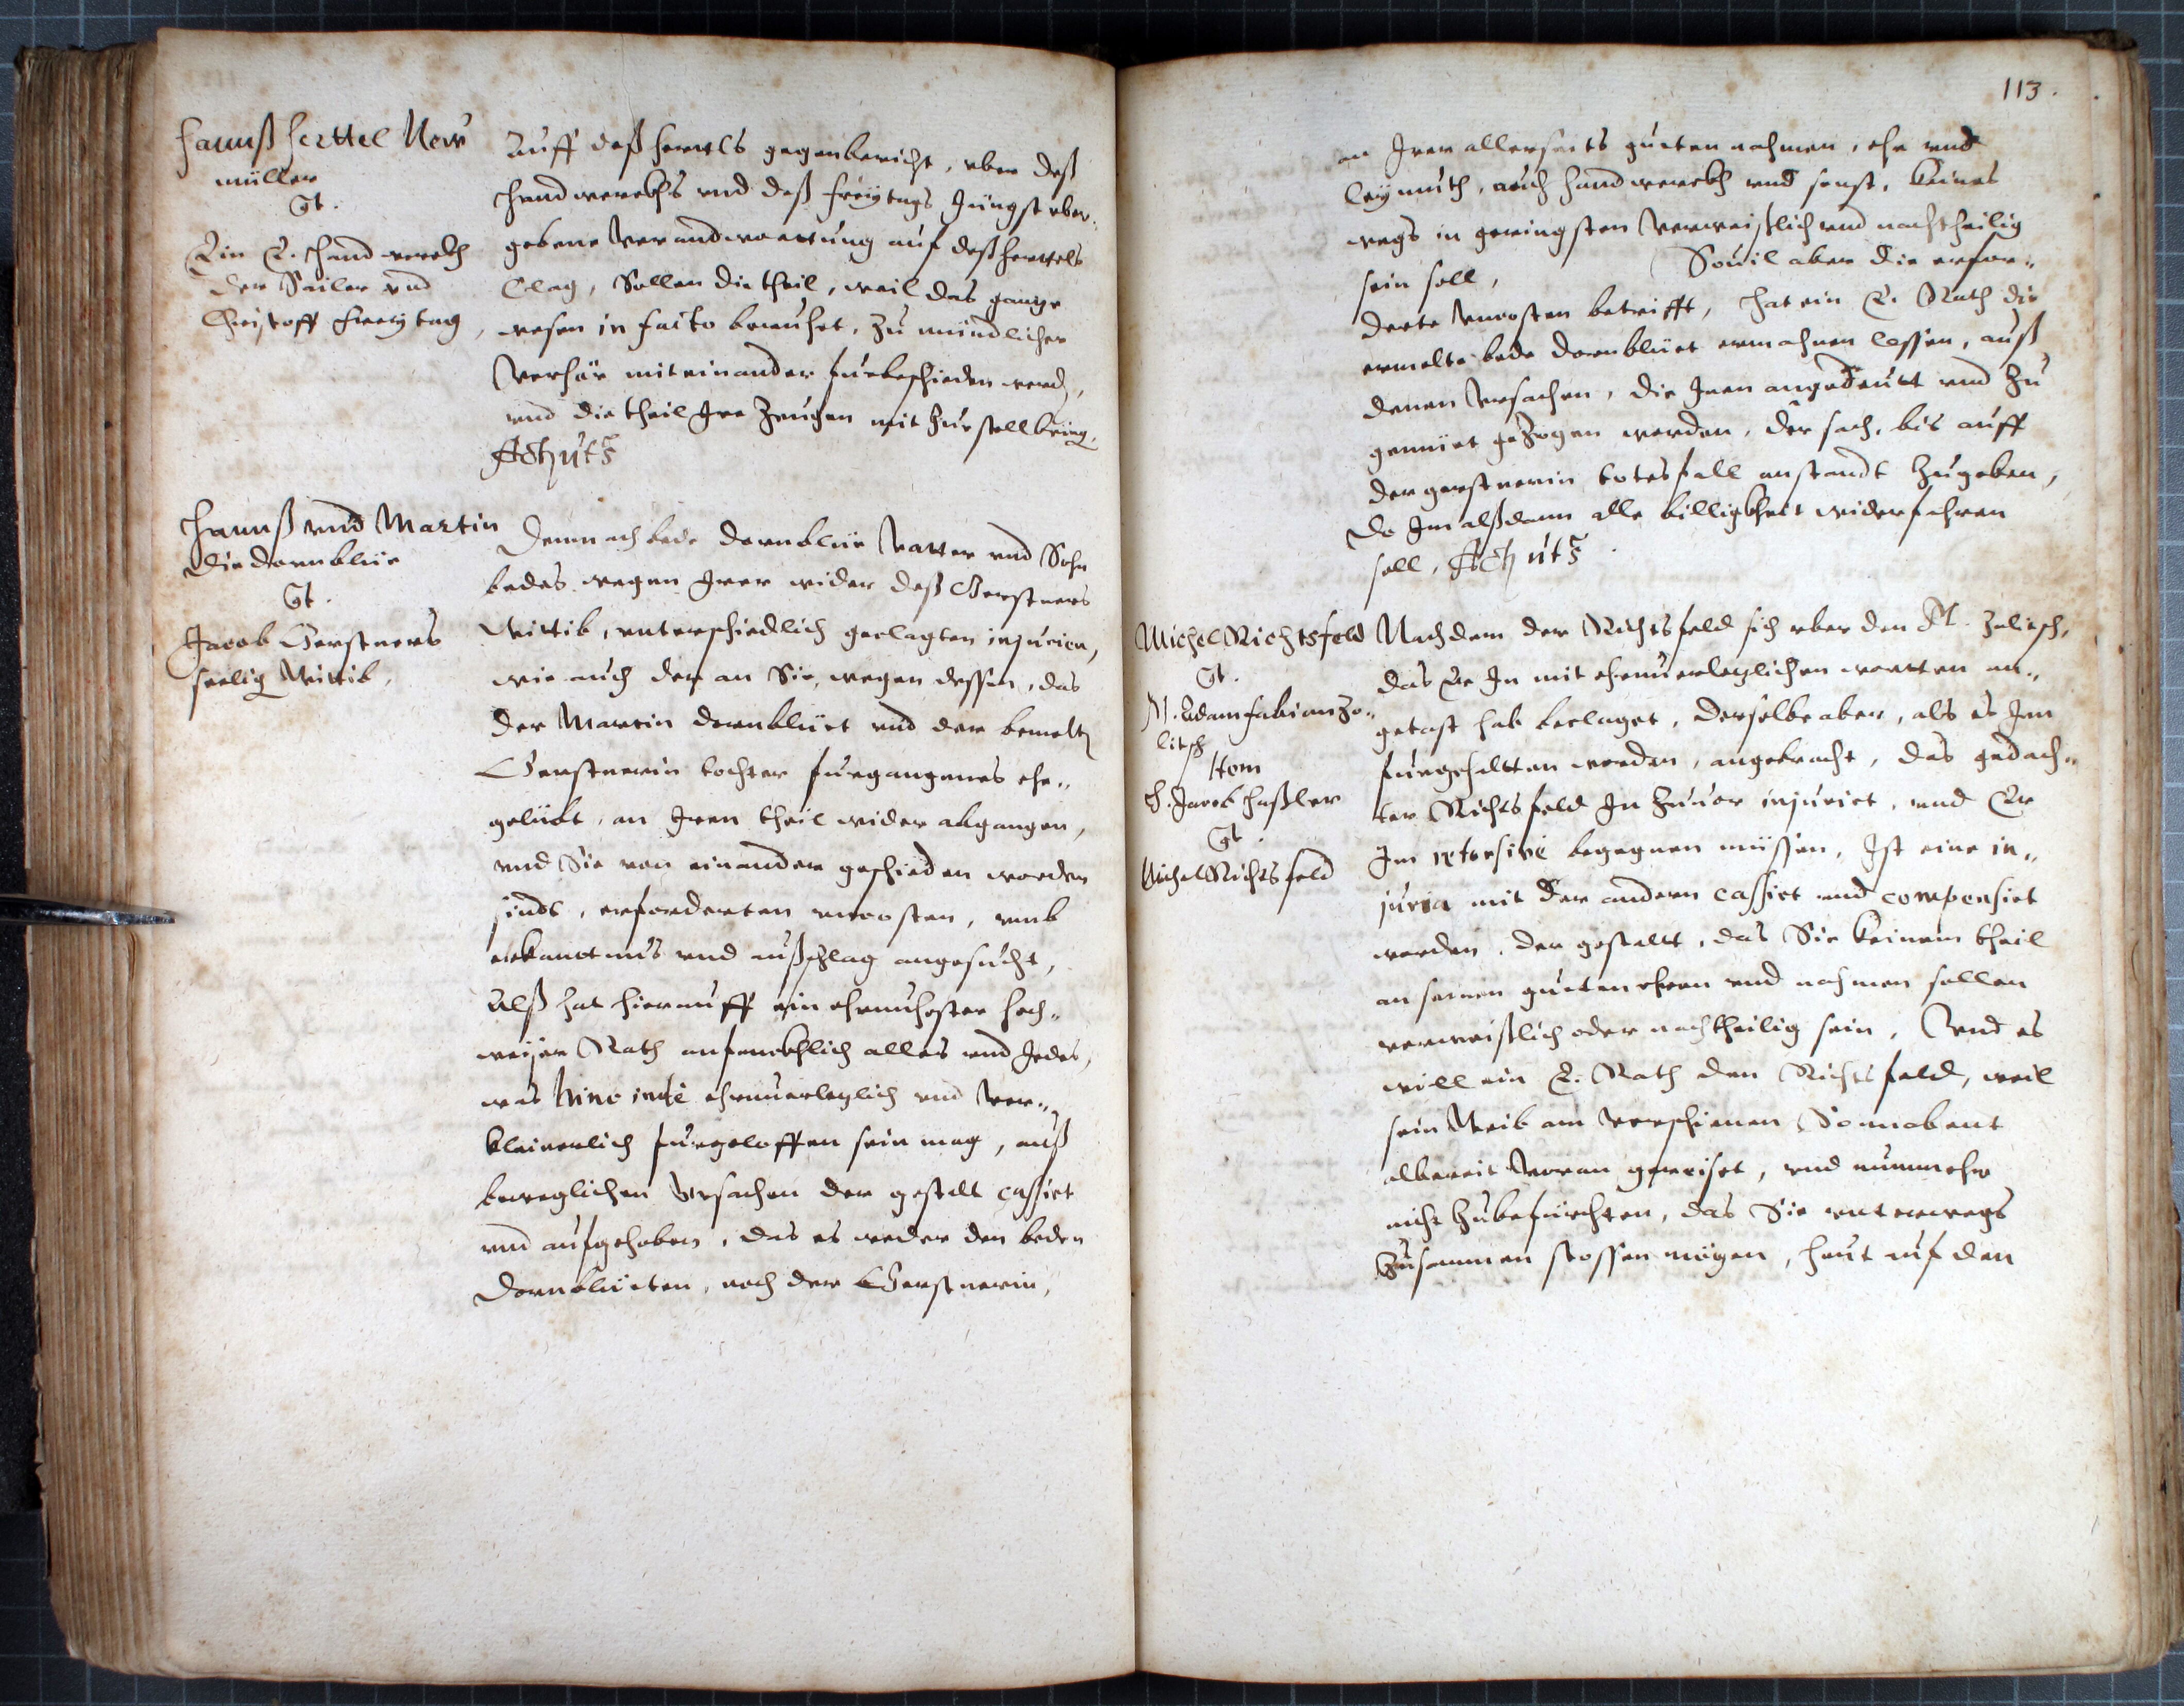 Hannß Herttel New
müller
Gt.
Ein E. Handwerckh
der Sailer vnd
Christoff Freytag,
Auff deß Hertels gegenbericht, vber deß
Handwerckhs vnd deß Freytags Jüngst vber
gebene Verandworttung auf deß Herttels
Clag, Sollen die theil, weil das gantze
wesen in facto beruhet, zu mündlicher
Verhör miteinander fürbeschieden werd,
vnd die theil Ire Zeugen mit zur stell bring.
Hannß vnd Martin
die Dornblüe
Gt.
Jacob Gerstners
seelig Wittib.
Demnach bede Dornblüe Vatter vnd Sohn
bedes wegen Irer wider deß Gerstners
Wittib, vnterschiedlich geclagten injurien,
wie auch der an Sie, wegen dessen, das
der Martin Dornblüet vnd der bemelten
Gerstnerin tochter fürgangenes ehe„
gelübt, an Irem theil wider abgangen,
vnd Sie von einander geschieden worden
sindt, erforderten vncosten, vmb
erkantnus vnd außschlag angesucht,
Alß hat hierauff ein ehrnuhester hoch„
weiser Rath anfenckhlich alles vnd Jedes,
was hinc inde ehrnuerlezlich vnd ver„
kleinerlich fürgeloffen sein mag, auß
beweglichen Vrsachen der gestalt cassirt
vnd aufgehoben, das es weder den beden
Dornblüeten, noch der Gerstnerin,
113.
an Iren allerseits guten nahmen, ehr vnd
Leymuth, auch Handwerckh vnd sonst, keines
wegs in geringsten Verweißlich vnd nachtheilig
sein soll, Souil aber die erfor„
derte vncosten betrifft, hat ein E. Rath die
ermelte bede Dornblüet ermahnen lassen, auß
denen Vrsachen, die Inen angedeutt vnd zu
gemüet gezogen worden, der sach, bis auff
der gerstnerin todesfall anstandt zugeben,
Da Im alßdann alle billigkheit widerfahren
soll,
Michel Richtsfeld
Gt.
M. Adam Fabian Zo„
litsch
Item
H. Jacob Haßler
Gt.
Michel Richtsfeld
Nachdem der Richtsfeld sich vber den M. Zolitsch,
das Er In mit ehrnuerlezlichen wortten an„
getast hab beclaget, derselbe aber, als es Im
fürgehaltten worden, angebracht, das gedach„
ter Richtsfeld In zuuor injurirt, vnd Er
Im retorsive begegnen müssen, Ist eine in„
juria mit der andern cassirt vnd compensirt
worden, der gestaltt, das Sie keinem theil
an seinen guten ehren vnd nahmen sollen
verweißlich oder nachtheilig sein, Vnd es
will ein E. Rath den Richtsfeld, weil
sein Weib am verschienen Sonnabent
albereit voran gereiset, vnd nunmehr
nicht zubefürchten, das Sie vnterwegs
zusammen stossen mögen, heut auf den